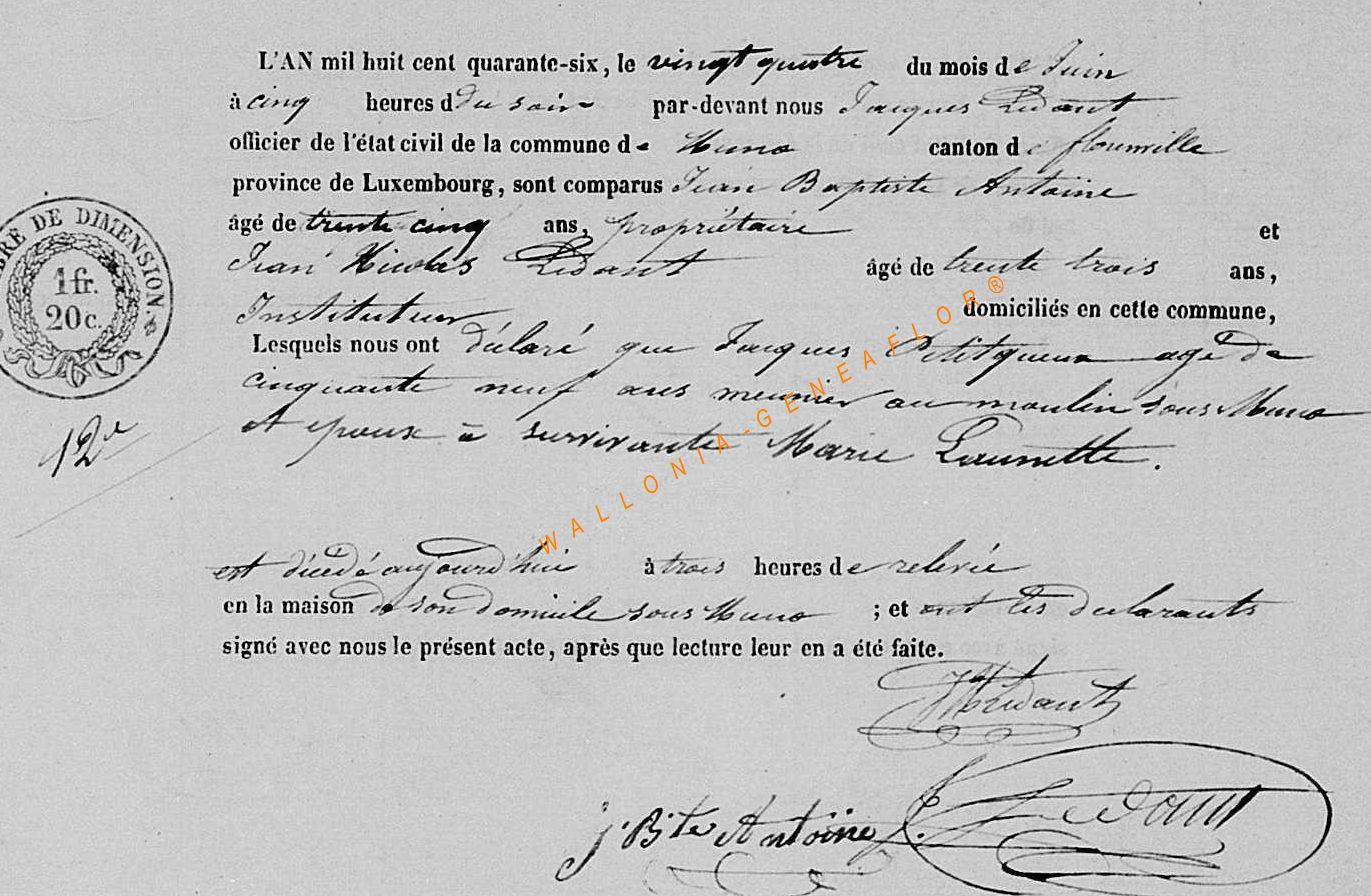 L'AN mil huit cent quarante-six, le vingt quatre du mois de Juin
à cinq heures d du soir par-devant nous Jacques Lédant
officier de l'état civil de la commune de Muno canton de florenville
province de Luxembourg, sont comparus Jean Baptiste Antoine
âgé de trente cinq ans, propriétaire et
Jean Nicolas Lédant âgé de trente trois ans,
Instituteur domiciliés en cette commune,
Lesquels nous ont déclaré que Jacques Petitqueux agé de
cinquante neuf ans meunier au moulin sous Muno
et époux à survivante Marie Launette.
est décédé aujourd'hui à trois heures de relevée
en la maison de son domicile sous Muno ; et ont les déclarants
signé avec nous le présent acte, après que lecture leur en a été faite.
J. Bte Antoine
Lédant
BRE DE DIMENSION.
1 fr.
20 c.
12e
WALLONIA-GENEAFLOR®